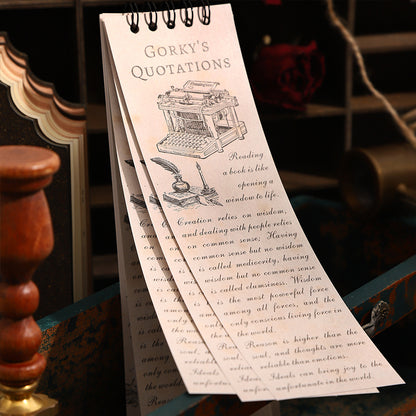 GORKY'S
QUOTATIONS
Reading
a book is like
opening a
window to life.
Creation relies on wisdom,
and dealing with people relies
on common sense; Having
common sense but no wisdom
is called mediocrity, having
wisdom but no common sense
is called clumsiness. Wisdom
is the most powerful force
among all forces, and the
only conscious living force in
the world.
Reason is higher than the
soul, and thoughts are more
reliable than emotions.
Ideals can bring joy to the
unfortunate in the world.